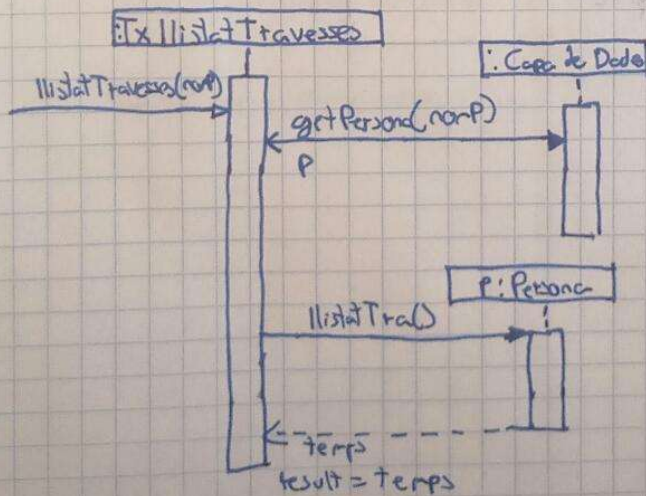 :Tx llistatTravesses
:Capa de Dades
llistatTravesses(nomP)
getPersona(nomP)
P
P:Persona
llistatTra()
temps
result = temps